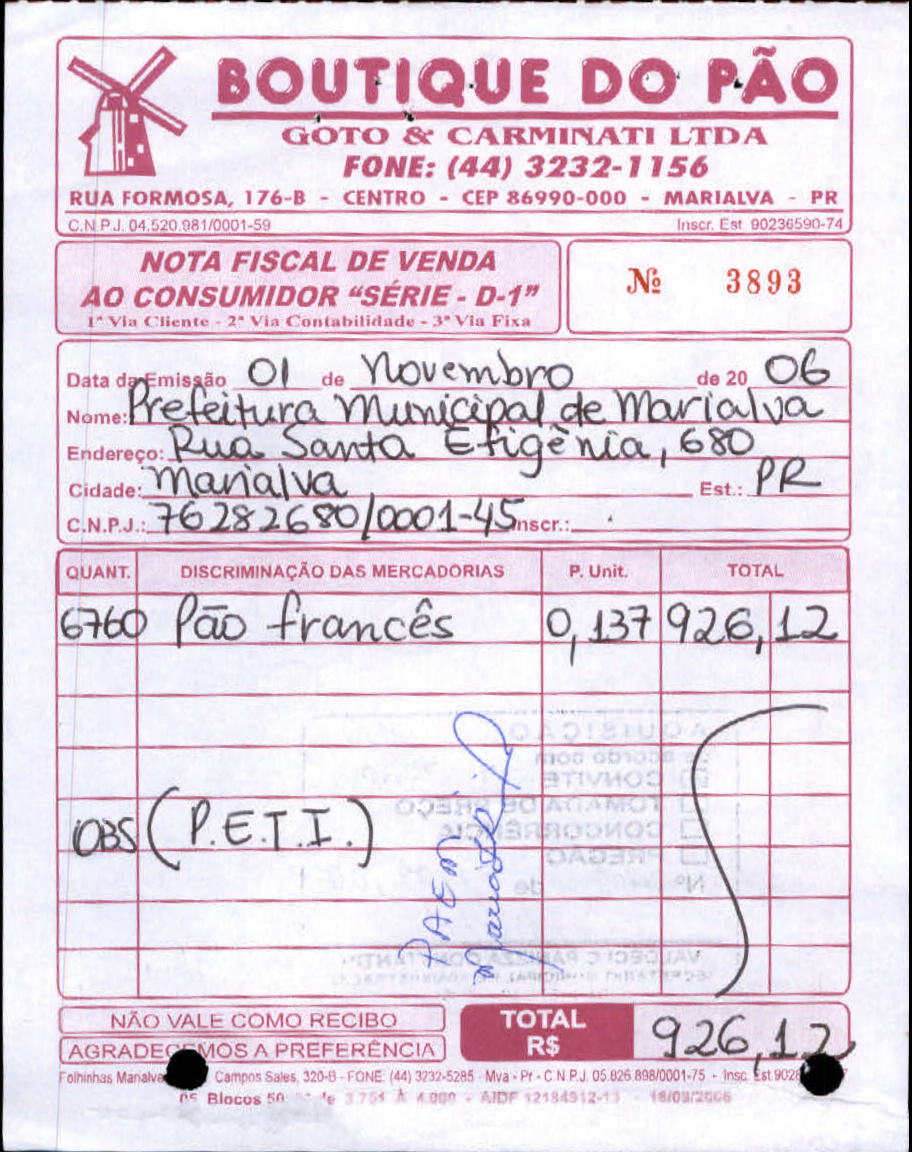 BOUTIQUE DO PÃO
GOTO & CARMINATI LTDA
FONE: (44) 3232-1156
RUA FORMOSA, 176-B - CENTRO - CEP 86990-000 - MARIALVA - PR
C.N.P.J. 04.520.981/0001-59 Inscr. Est. 90236590-74
NOTA FISCAL DE VENDA
AO CONSUMIDOR “SÉRIE - D-1”
1ª Via Cliente - 2ª Via Contabilidade - 3ª Via Fixa
Nº 3893
Data da Emissão 01 de Novembro de 20 06
Nome: Prefeitura Municipal de Marialva
Endereço: Rua Santa Efigênia, 680
Cidade: Marialva Est.: PR
C.N.P.J.: 76282680/0001-45 Inscr.:
QUANT. DISCRIMINAÇÃO DAS MERCADORIAS P. Unit. TOTAL
6760 Pão francês 0,137 926,12
AQUISIÇÃO
de acordo com
CONVITE
TOMADA DE PREÇO
CONCORRÊNCIA
PREGÃO
Nº de
OBS (P.E.T.I.)
NÃO VALE COMO RECIBO
AGRADECEMOS A PREFERÊNCIA
TOTAL
R$ 926,12
Folhinhas Marialva Campos Sales, 320-B - FONE: (44) 3232-5285 - Mva - Pr - C.N.P.J. 05.826.898/0001-75 - Insc. Est. 9028
05 Blocos 50 de 3.751 À 4.000 - AIDF 12184912-13 - 18/08/2006